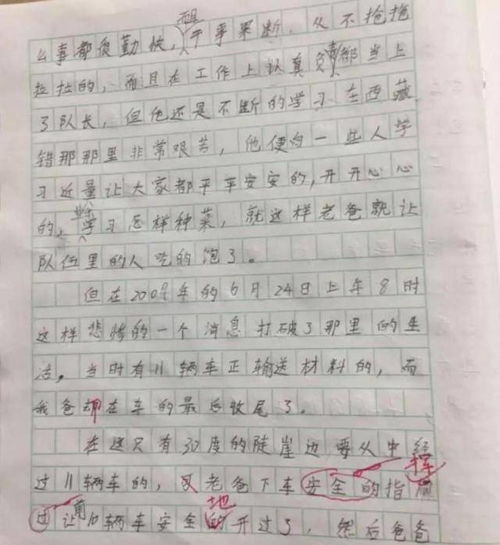 么事都很勤快，想干事果断，从不拖拖
拉拉的，而且在工作上认真负责都当上
了队长，但他还是不断的学习在西藏
错那那里非常艰苦，他便向一些人学
习近量让大家都平平安安的，开开心心
的，学习怎样种菜，就这样老爸就让
队伍里的人吃的饱了。
但在2009年的6月24日上午8时
这样悲惨的一个消息打破了那里的生
活，当时有11辆车正输送材料的，而
我爸却在车的最后收尾了。
在这只有30度的陡崖边要从中经
过11辆车的，老爸下车安全的指挥
过让前10辆车安全地的开过了，然后爸爸